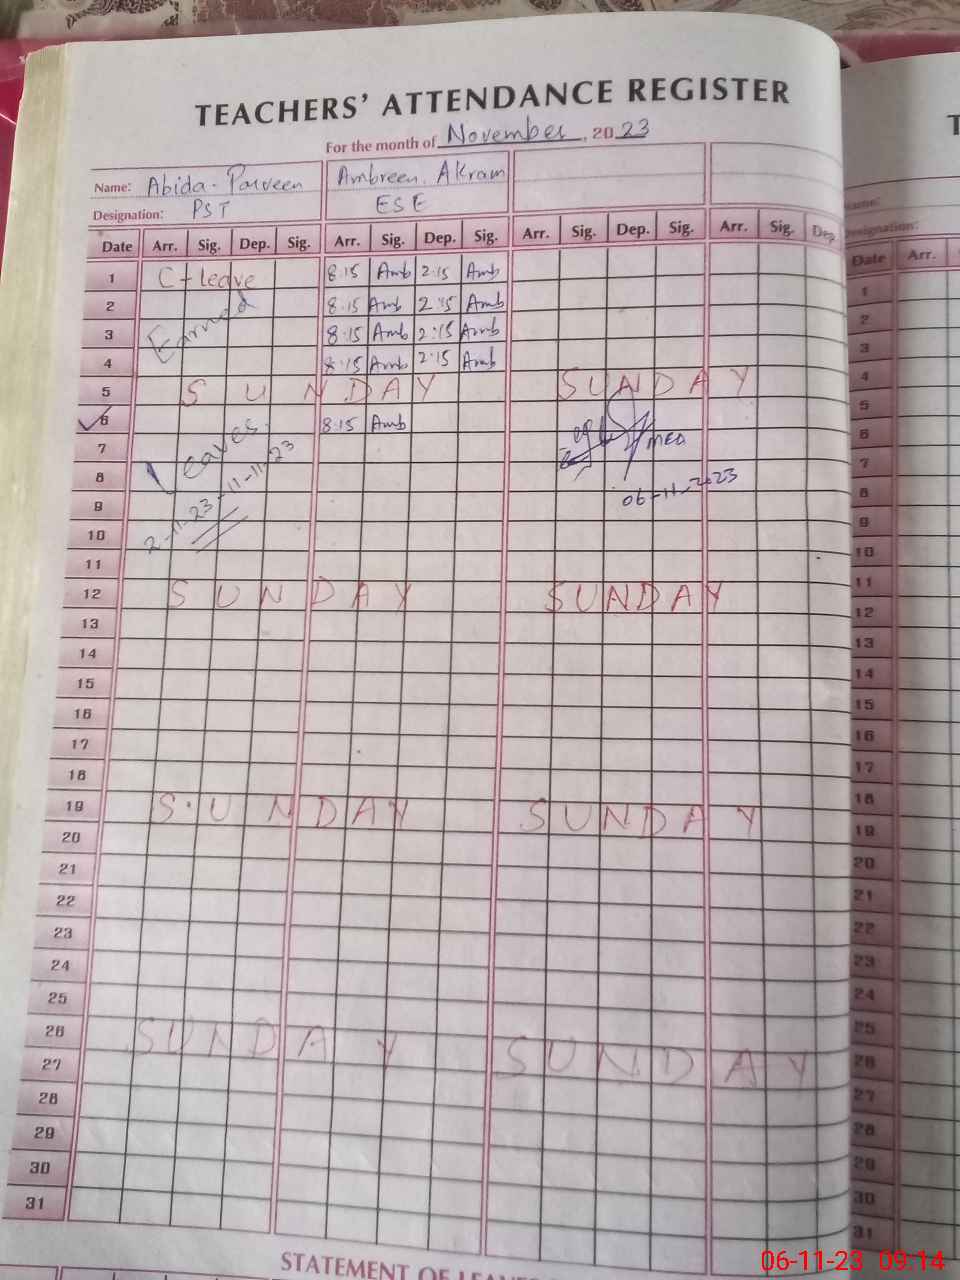 TEACHERS' ATTENDANCE REGISTER
For the month of November, 2023
Name: Abida-Parveen Ambreen. Akram
Designation: PST ESE
Date Arr. Sig. Dep. Sig. Arr. Sig. Dep. Sig. Arr. Sig. Dep. Sig. Arr. Sig. Dep
1 C-leave 8:15 Amb 2:15 Amb
2 Earned 8:15 Amb 2:15 Amb
3 8:15 Amb 2:15 Amb
4 8:15 Amb 2:15 Amb
5 SUNDAY SUNDAY
6 8:15 Amb
7 Leaves. MEO
8 06-11-2023
9 2-11-23-11-11-23
10
11
12 SUNDAY SUNDAY
13
14
15
16
17
18
19 S.UNDAY SUNDAY
20
21
22
23
24
25
26 SUNDAY SUNDAY
27
28
29
30
31
STATEMENT OF LEAVE
T
Name:
Designation:
Date Arr.
1
2
3
4
5
6
7
8
9
10
11
12
13
14
15
16
17
18
19
20
21
22
23
24
25
26
27
28
29
30
31
06-11-23 09:14